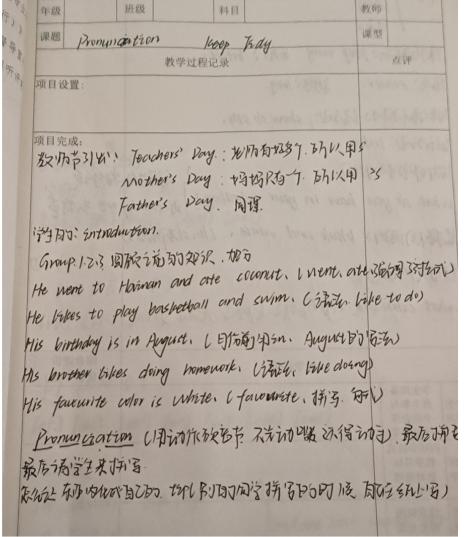 年级 班级 科目 教师
课题 Pronunciation Keep Tidy 课型
教学过程记录 点评
项目设置:
项目完成:
教师节引出: Teachers' Day: 老师有好多个,所以用s'
Mother's Day: 妈妈只有一个,所以用 's
Father's Day. 同理.
学生的: introduction.
Group 1.2.3 回顾之前的知识.加分
He went to Hainan and ate coconut. (went, ate 强调过去式)
He likes to play basketball and swim. (语法: like to do)
His birthday is in August. (月份前用in, August的写法)
His brother likes doing homework. (语法: like doing)
His favourite color is white. (favourite, 拼写
Pronunciation (用动作放音节 不光动嘴 还得动手).
最后请学生来拼写
同学拼写的时候 在纸上写)